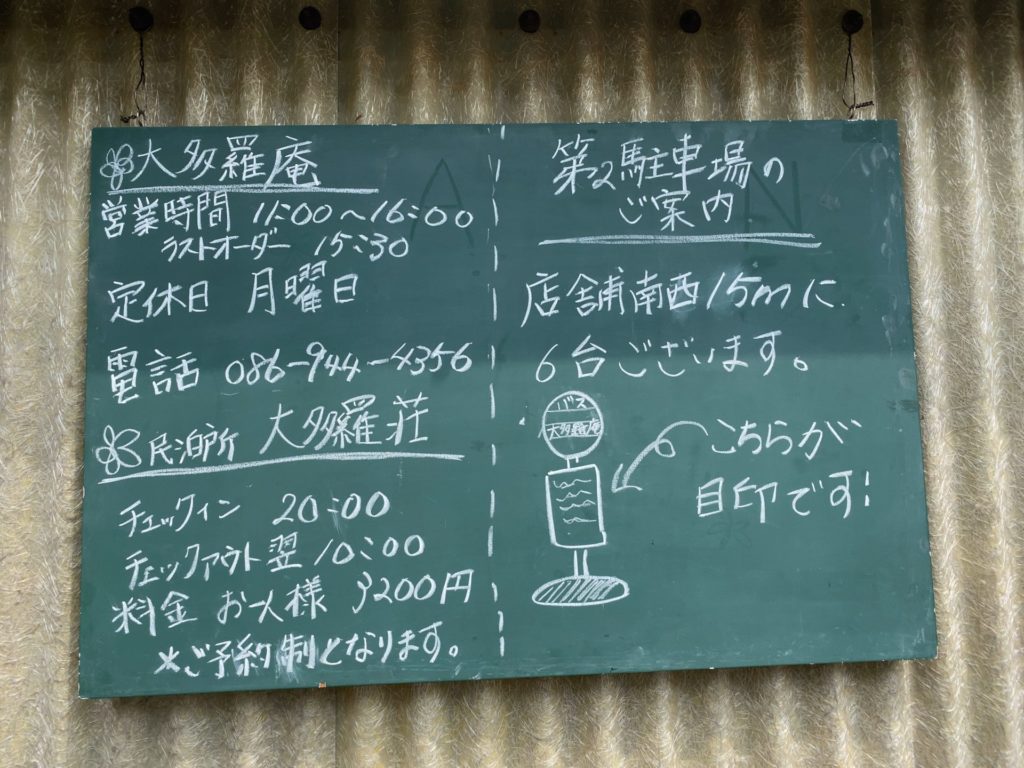 大多羅庵
営業時間 11:00〜16:00
ラストオーダー 15:30
定休日 月曜日
電話 086-944-4356
民泊所 大多羅荘
チェックイン 20:00
チェックアウト 翌10:00
料金 お一人様 3200円
*ご予約制となります。
第2駐車場の
ご案内
店舗南西15mに
6台ございます。
バス
大多羅庵
こちらが
目印です!